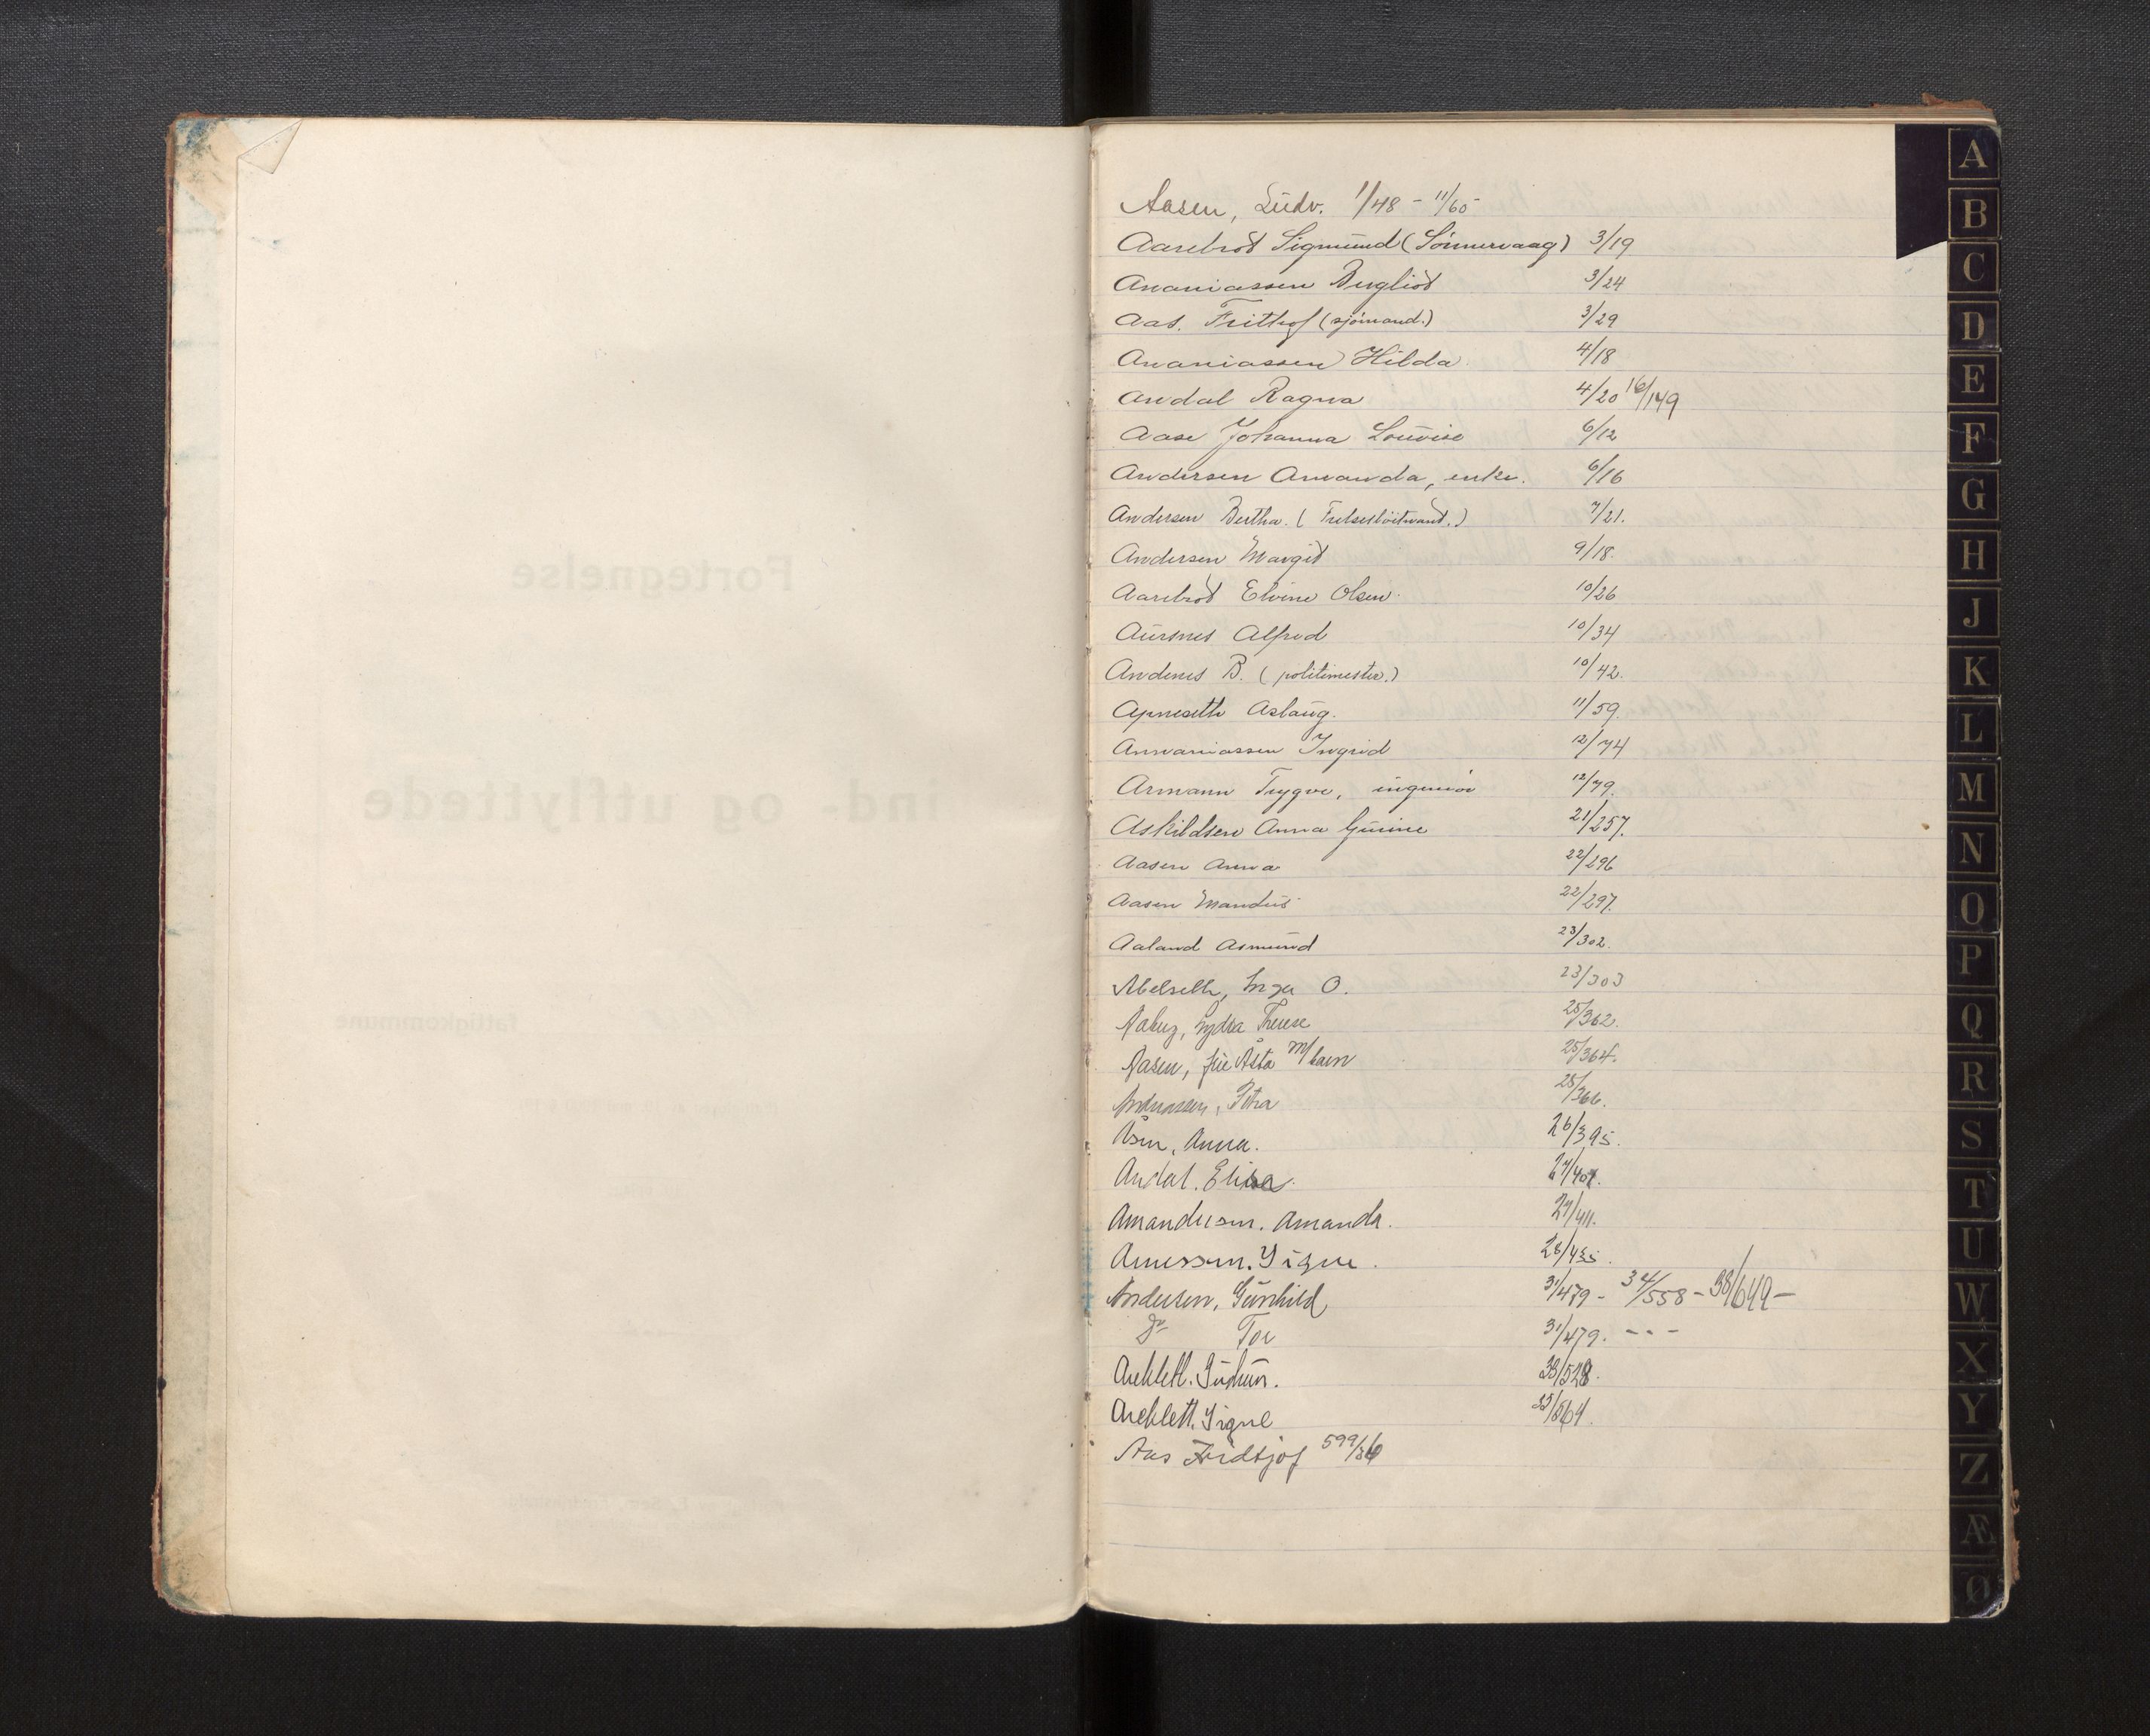 Aasen, Ludv. 1/48 - 11/60
Aarebrot Sigmund (Sönnervaag) 3/19
Ananiassen Bergliot 3/24
Aas. Frithof (sjömand.) 3/29
Ananiassen Hilda 4/18
Andal Ragna 4/20 16/149
Aase Johanna Lovise 6/12
Andersen Amanda, enke. 6/16
Andersen Bertha. ( 7/21.
Andersen Margit 9/18.
Aarebrot Elvine Olsen. 10/26
Aursnes Alfred 10/34
Andenes B. (politimester.) 10/42.
Apneseth Aslaug. 11/59.
Annaniassen Ingrid 12/74
Armann Trygve, ingeniör 12/79.
Askildsen Anna Gurine 21/257.
Aasen Anna 22/296
Aasen Mandus 22/297.
Aaland Asmund 23/302.
Abelseth, Inga O. 23/303
Therese 25/362.
Aasen, frk Åsta m/barn 25/364.
Andreassen, Petra 25/366.
Åsen, Anna. 26/395.
Andal. Elisa.
Amandusen. Amanda. 27/411.
Signe. 28/435.
Andersen, Gunhild 31/479 - 34/558 - 38/649 -
Do Tor 31/479. - - -
Areklett. Gudrun. 33/528.
Areklett. Signe
Aas Fridtjof 599/36
A
B
C
D
E
F
G
H
J
K
L
M
N
O
P
Q
R
S
T
U
W
X
Y
Z
Æ
Ø
Fortegnelse
ind- og utflyttede
fattigkommune